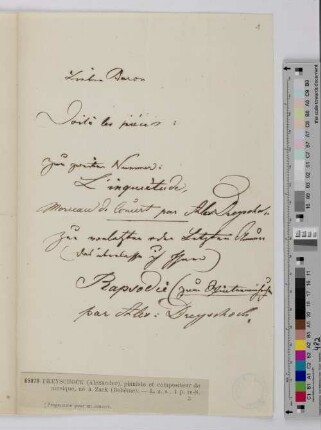 1
Lieber Baron
Voilà les pièces:
zur zweiten Nummer:
L'inquiétude,
Morceau de Concert par Alex Dreyschock.
zur vorletzten oder letzten Num̄er
(das überlasse ich Ihnen)
Rapsodie (zum
par Alex: Dreyschock.
DREYSCHOCK (Alexander), pianiste et compositeur de
musique, né à Zack (Bohême). — L. a. s., 1 p. in-8.
482